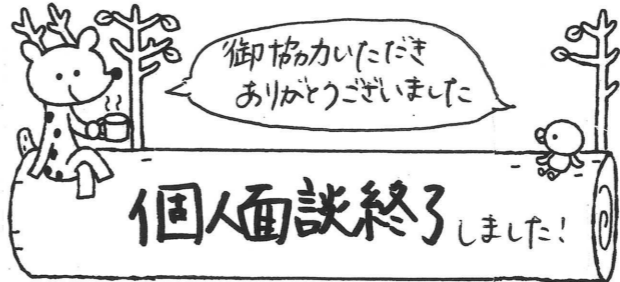 御協力いただき
ありがとうございました
個人面談終了しました!